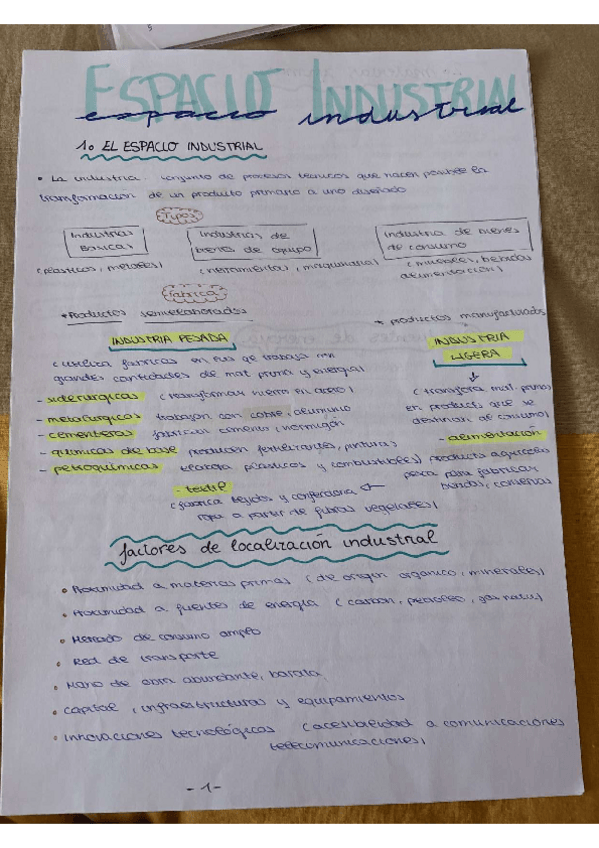 ESPACIO INDUSTRIAL
espacio industrial
1. EL ESPACIO INDUSTRIAL
• La industria conjunto de procesos técnicos que hacen posible la
transformación de un producto primario a uno diseñado
Tipos
Industrias Básicas
Industrias de bienes de equipo
Industria de bienes de consumo
(plásticos, metales)
(herramientas, maquinaria)
(muebles, bebidas alimentación)
fabrica
* Productos semielaborados
* productos manufacturados
INDUSTRIA PESADA
INDUSTRIA LIGERA
(utiliza fabricas en las que se trabaja con
grandes cantidades de mat. prima y energía)
- siderúrgicas (transforman hierro en acero)
- metalúrgicas trabajan con cobre, aluminio
- cementeras fabrican cemento, hormigón
- químicas de base producen fertilizantes, pinturas
- petroquímicas trabaja plásticos y combustibles)
(transforma mat. primas
en products que se
destinan al consumo)
- alimentación
products agrícolas
para fabricar
bebidas, conservas
- textil
(fabrica tejidos y confecciona
ropa a partir de fibras vegetales)
factores de localización industrial
• Proximidad a materias primas (de origen orgánico, minerales)
• Proximidad a fuentes de energía (carbón, petróleo, gas natu)
• Mercado de consumo amplio
• Red de transporte
• Mano de obra abundante, barata
• Capital, infraestructuras y equipamientos
• Innovaciones tecnológicas (accesibilidad a comunicaciones
telecomunicaciones)
- 1 -